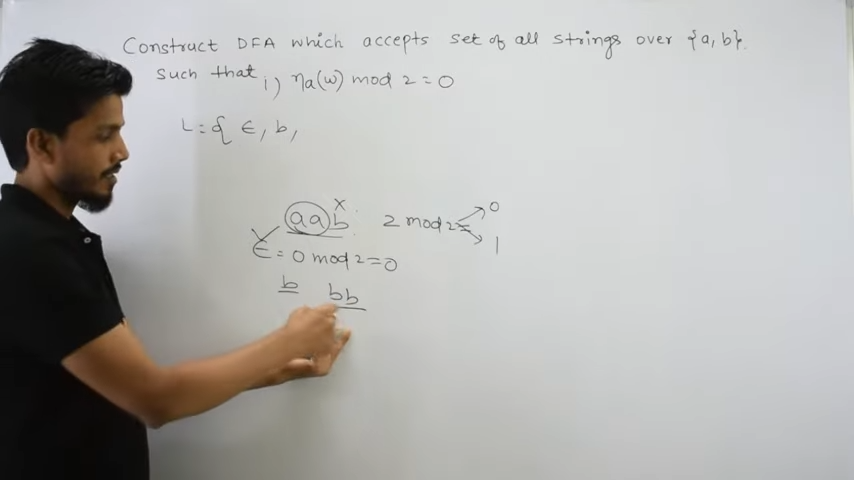 Construct DFA which accepts set of all strings over {a, b}.
such that i) na(w) mod 2 = 0
L = { ∈, b,
x
aab 2 mod 2 = 0
1
∈ = 0 mod 2 = 0
b bb